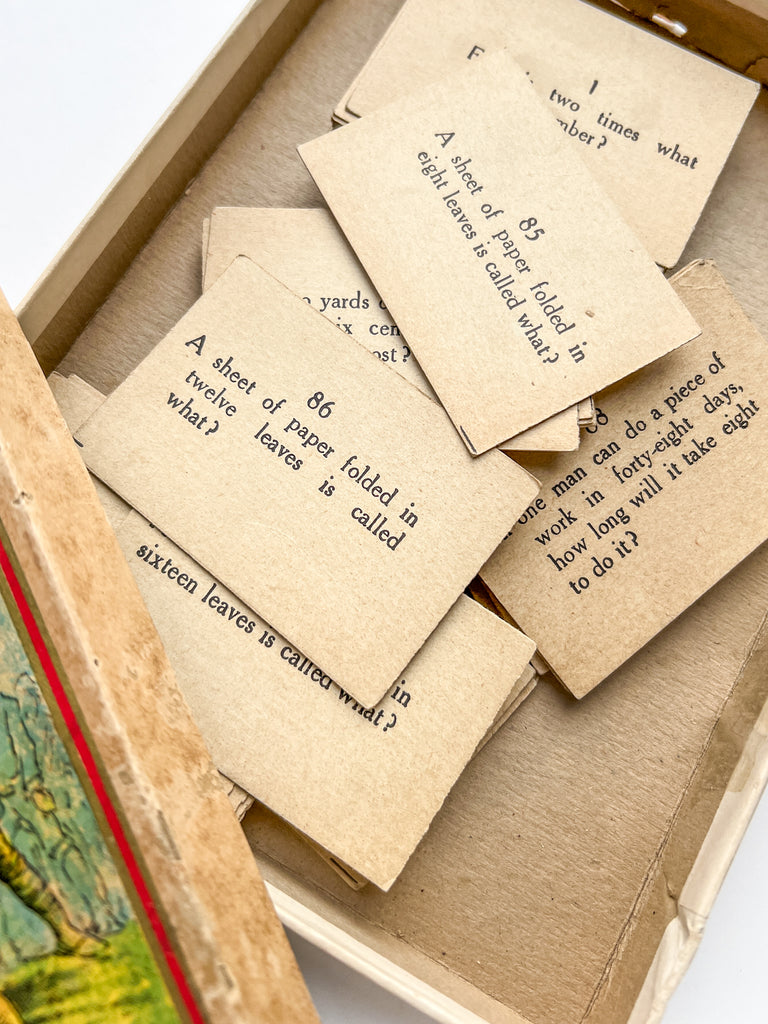 1
two times what
mber?
85
A sheet of paper folded in
eight leaves is called what?
yards
ix cen
ost?
86
A sheet of paper folded in
twelve leaves is called
what?
8
one man can do a piece of
work in forty-eight days,
how long will it take eight
to do it?
in
sixteen leaves is called what?